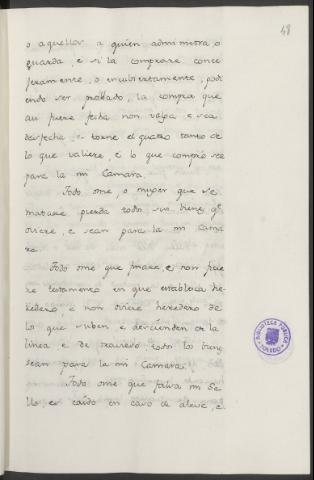 48
o aquellos a quien administra, o
guarda, e si la comprare conce
jeramente, o encubiertamente, pod
iendo ser probado, la compra que
asi fuere fecha non valga e sea
desfecha, e torne el quatro tanto de
lo que valiere, e lo que compró sea
para la mi Camara.
Todo ome, o muger que se
matare pierda todos sus bienes qe
oviere, e sean para la mi cama
ra.
Todo ome que finare, e non fue
re testamento en que establesca he-
redero, e non oviere heredero de
lo que suben e descienden en la
linea e de traviesso todo los bienes
sean para la mi Camara.
Todo ome que falsa mi Se
llo, es caido en caso de aleve, e
BIBLIOTECA PUBLICA
TOLEDO